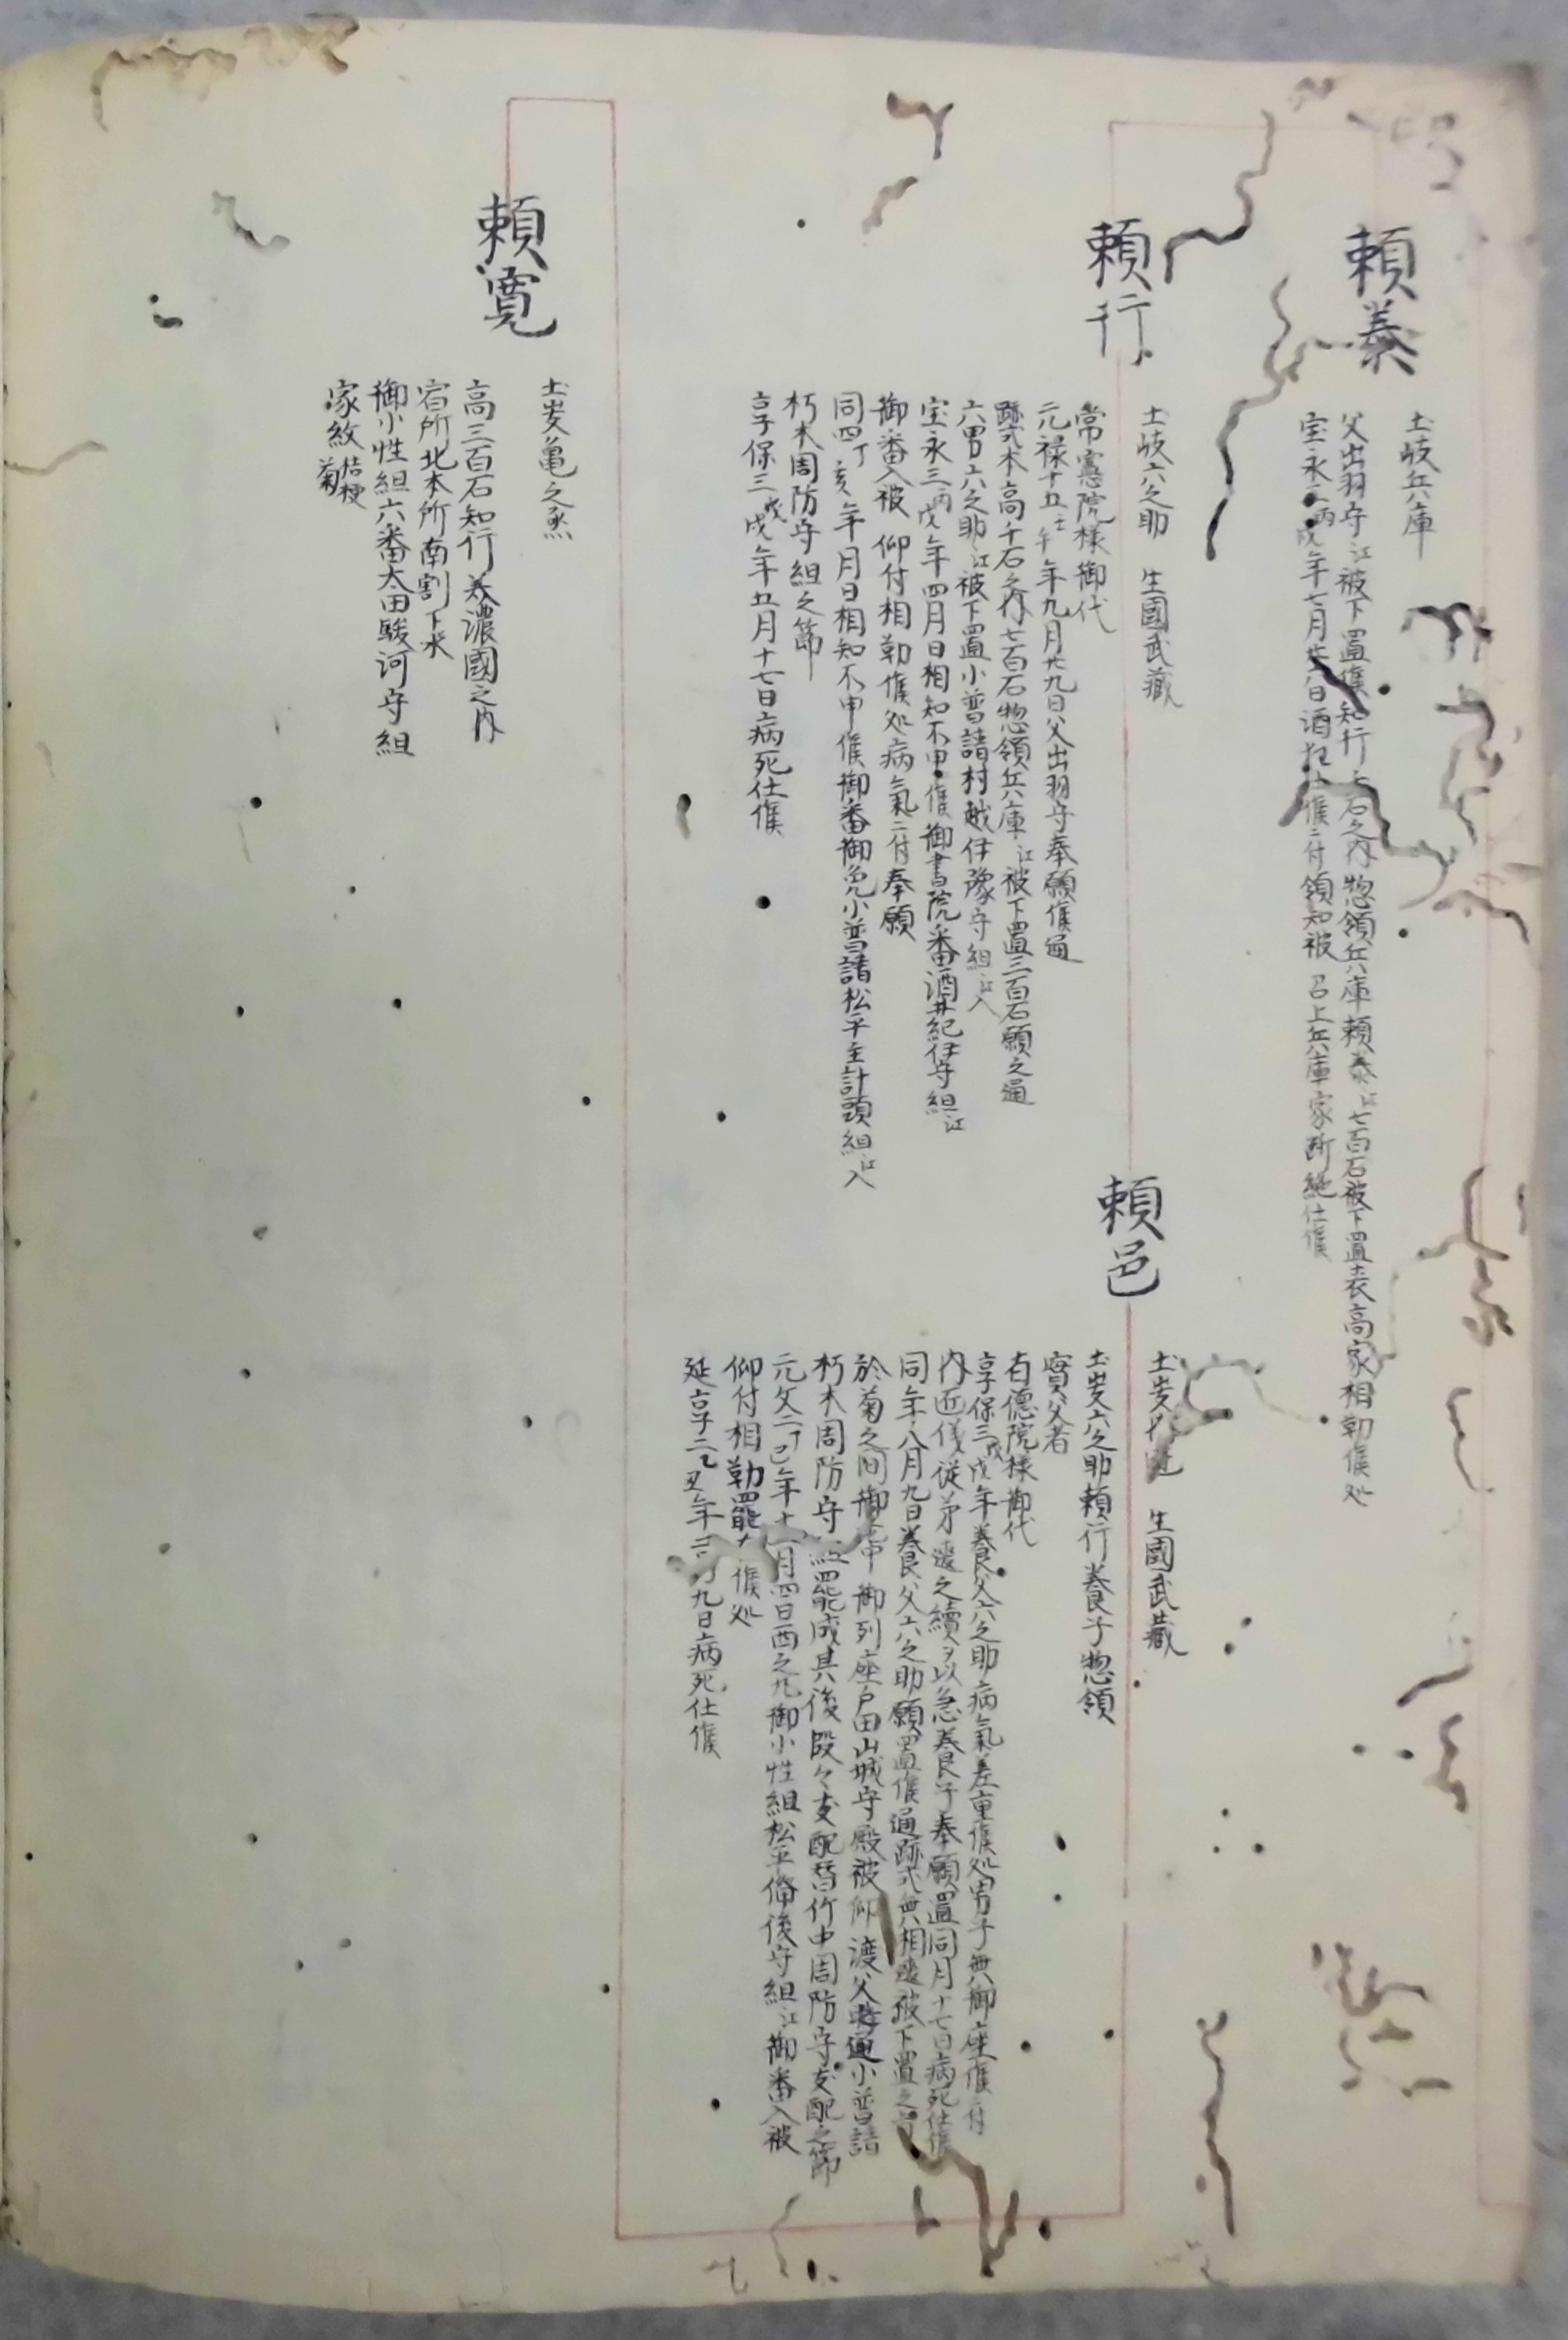 頼泰
土岐兵庫
父出羽守江被下置候知行千石之内惣領兵庫頼泰江七百石被下置表高家相勤候処
宝永三丙戌年七月廿八日酒狂仕候ニ付領知被 召上兵庫家断絶仕候
頼行
土岐六之助 生國武藏
常憲院様御代
元禄十五壬午年九月廿九日父出羽守奉願候通
跡式本高千石之内七百石惣領兵庫江被下置三百石願之通
六男六之助江被下置小普請村越伊豫守組江入
宝永三丙戌年四月日相知不申候御書院番酒井紀伊守組江
御番入被 仰付相勤候処病氣ニ付奉願
同四丁亥年月日相知不申候御番御免小普請松平主計頭組江入
朽木周防守組之節
享保三戊戌年五月十七日病死仕候
頼邑
土岐 生國武藏
土岐六之助頼行養子惣領
實父者
有德院様御代
享保三戊戌年養父六之助病氣差重候処男子無御座候ニ付
内匠儀従弟違之續ヲ以急養子奉願置同月十七日病死仕候
同年八月九日養父六之助願置候通跡式無相違被下置之旨
於菊之間御老中御列座戸田山城守殿被仰渡父時通小普請
朽木周防守組罷成其後段々支配替竹中周防守支配之節
元文二丁巳年十一月四日西之丸御小性組松平備後守組江御番入被
仰付相勤罷在候処
延享二乙丑年三月九日病死仕候
頼寛
土岐亀之丞
高三百石知行美濃國之内
宿所北本所南割下水
御小性組六番太田駿河守組
家紋 桔梗 菊